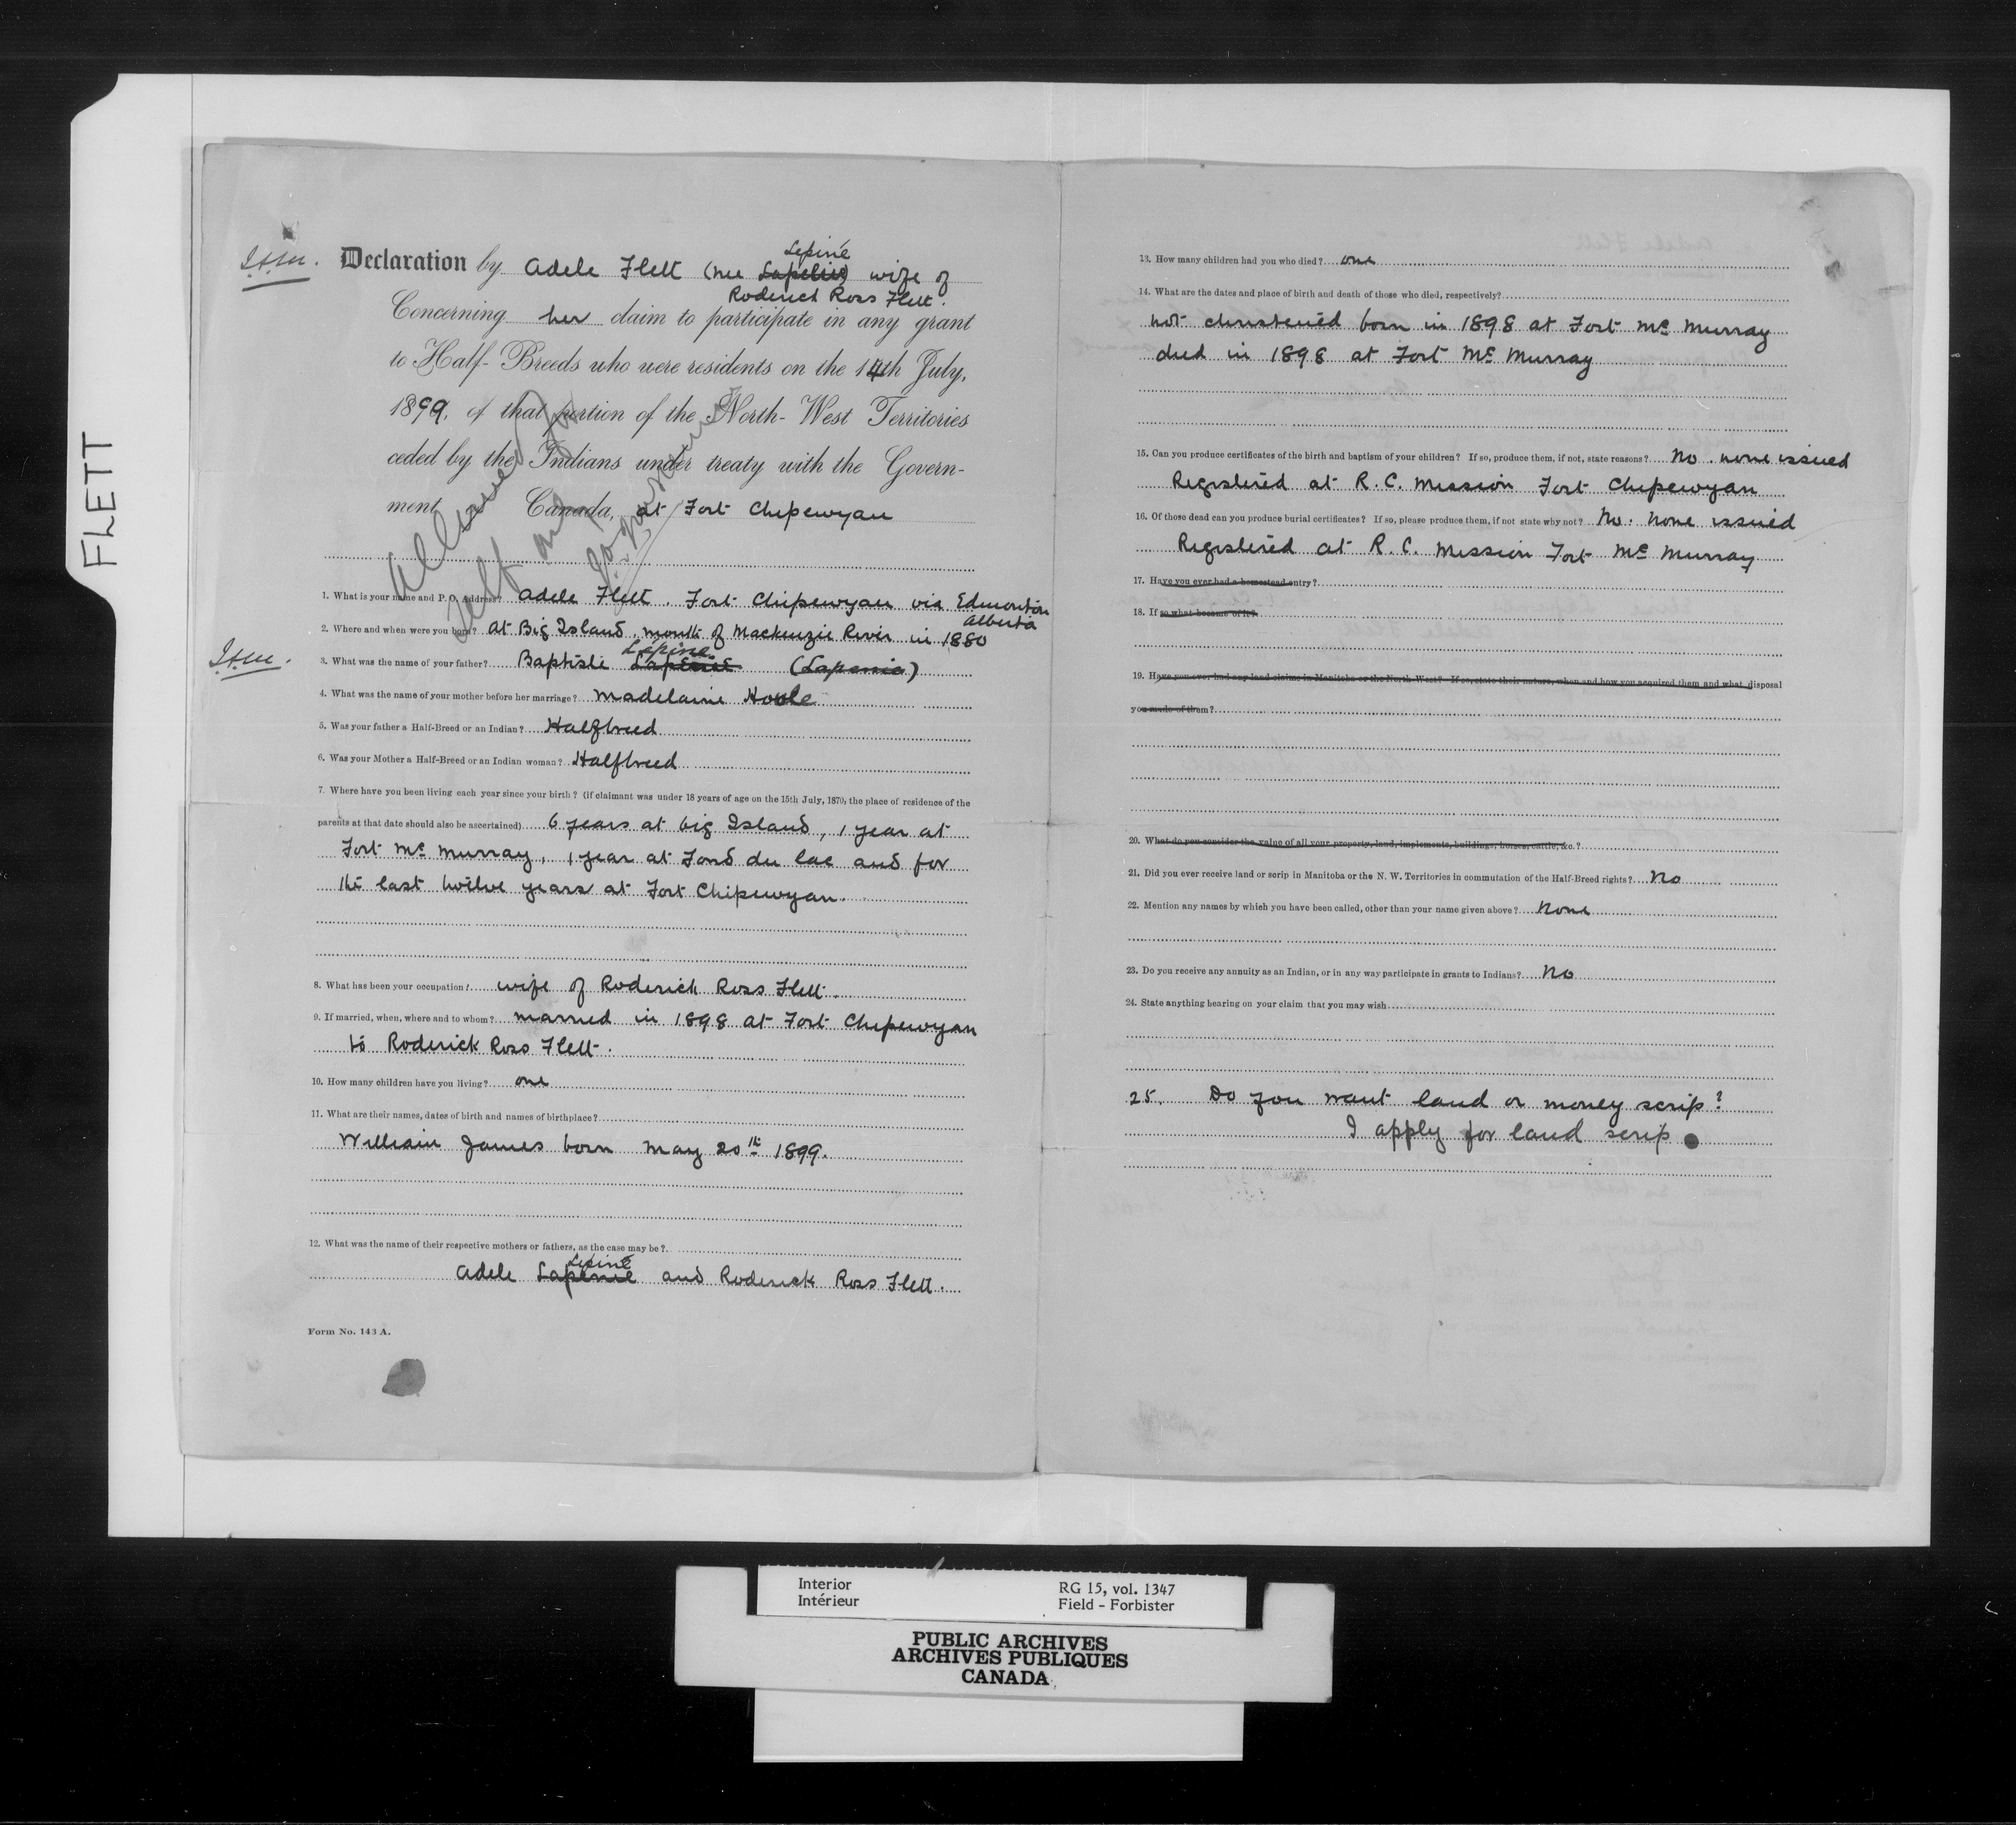 FLETT
Declaration by Adele Flett (nee Lapetie) Lepine wife of
Roderick Ross Flett.
Concerning her claim to participate in any grant
to Half-Breeds who were residents on the 14th July,
1899, of that portion of the North-West Territories
ceded by the Indians under treaty with the Govern-
ment Canada, at Fort Chipewyan
Allowed
1. What is your name and P. O. Address? Adele Flett. Fort Chipewyan via Edmonton
Alberta
2. Where and when were you born? At Big Island, mouth of Mackenzie River in 1880
3. What was the name of your father? Baptiste Lapenie Lepine (Lapenie)
4. What was the name of your mother before her marriage? Madelaine Houle
5. Was your father a Half-Breed or an Indian? Halfbreed
6. Was your Mother a Half-Breed or an Indian woman? Halfbreed
7. Where have you been living each year since your birth? (if claimant was under 18 years of age on the 15th July, 1870, the place of residence of the
parents at that date should also be ascertained) 6 years at big Island, 1 year at
Fort Mc Murray, 1 year at Fond du lac and for
the last twelve years at Fort Chipewyan.
8. What has been your occupation? wife of Roderick Ross Flett.
9. If married, when, where and to whom? married in 1898 at Fort Chipewyan
to Roderick Ross Flett.
10. How many children have you living? one
11. What are their names, dates of birth and names of birthplace?
William James born May 20th 1899.
12. What was the name of their respective mothers or fathers, as the case may be?
Lepine
Adele Lapenie and Roderick Ross Flett.
Form No. 143 A.
13. How many children had you who died? one
14. What are the dates and place of birth and death of those who died, respectively?
not christened born in 1898 at Fort Mc Murray
died in 1898 at Fort Mc Murray
15. Can you produce certificates of the birth and baptism of your children? If so, produce them, if not, state reasons? No. none issued
Registered at R. C. Mission Fort Chipewyan
16. Of those dead can you produce burial certificates? If so, please produce them, if not state why not? No. None issued
Registered at R. C. Mission Fort Mc Murray
17. Have you ever had a homestead entry?
18. If so what became of it?
19. Have you ever had any land claims in Manitoba or the North-West? If so, state their nature, when and how you acquired them and what disposal
you made of them?
20. What do you consider the value of all your property, land, implements, buildings, horses, cattle, &c.?
21. Did you ever receive land or scrip in Manitoba or the N. W. Territories in commutation of the Half-Breed rights? No
22. Mention any names by which you have been called, other than your name given above? None
23. Do you receive any annuity as an Indian, or in any way participate in grants to Indians? No
24. State anything bearing on your claim that you may wish
25. Do you want land or money scrip?
I apply for land scrip
Interior
Intérieur
RG 15, vol. 1347
Field - Forbister
PUBLIC ARCHIVES
ARCHIVES PUBLIQUES
CANADA